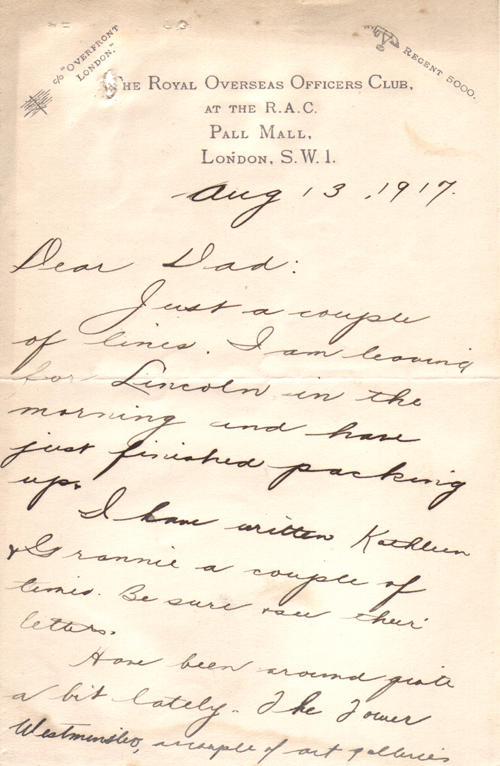 c/o "OVERFRONT
LONDON."
REGENT 5000.
THE ROYAL OVERSEAS OFFICERS CLUB,
AT THE R.A.C.
PALL MALL,
LONDON, S.W.1.
Aug 13, 1917.
Dear Dad:
Just a couple
of lines. I am leaving
for Lincoln in the
morning and have
just finished packing
up.
I have written Kathleen
& Grannie a couple of
times. Be sure & see their
letters.
Have been around quite
a bit lately. The Tower
Westminster, a couple of art galleries